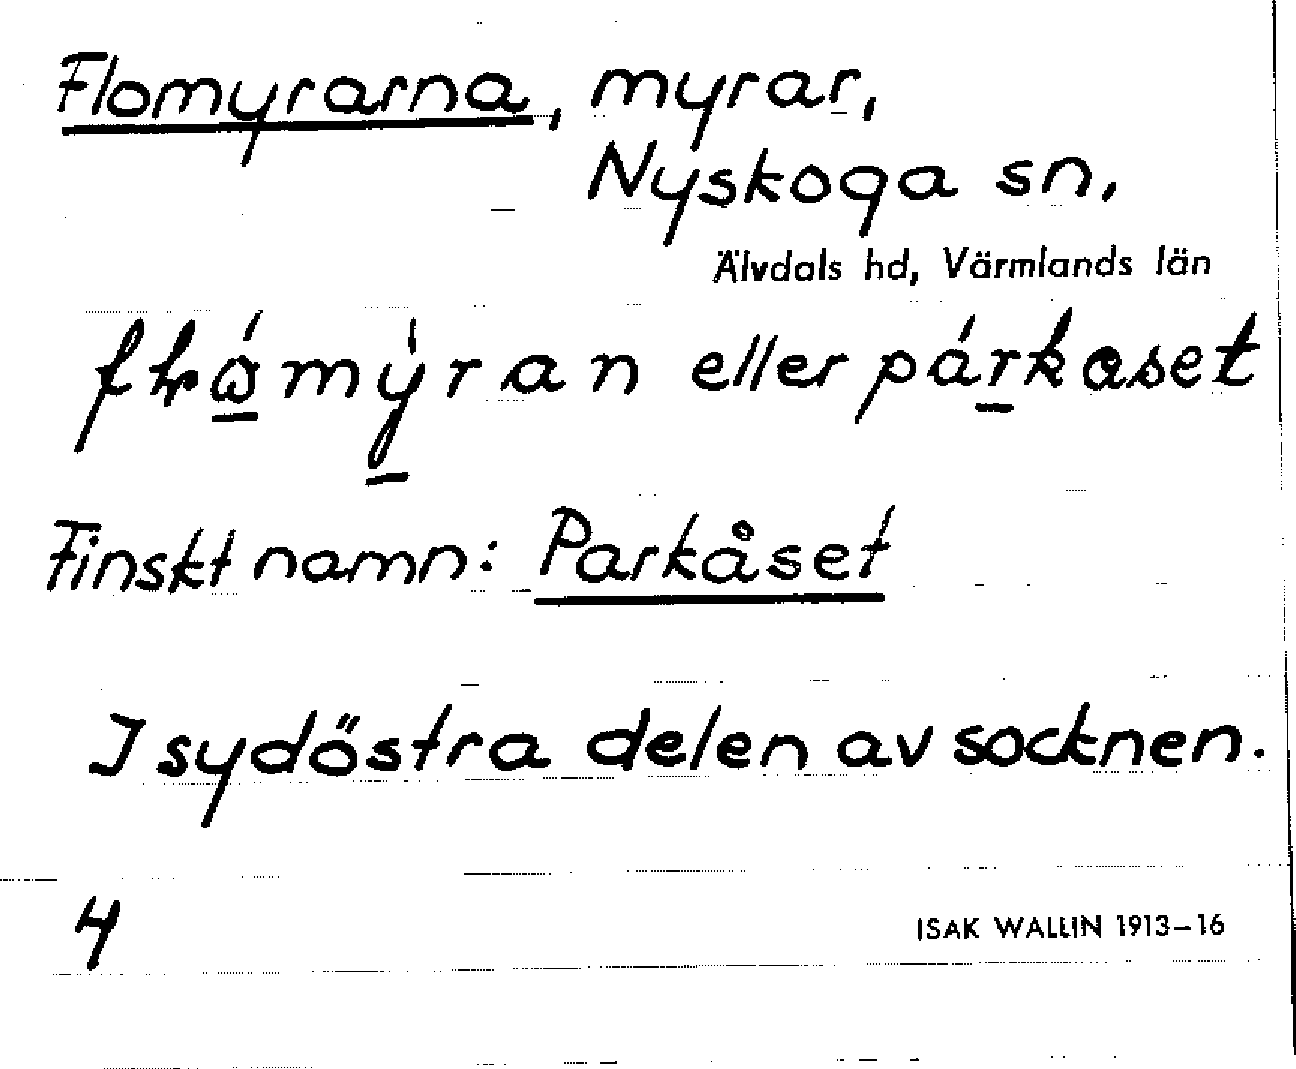 Flomyrarna, myrar,
Nyskoga sn,
Älvdals hd, Värmlands län
eller
Finskt namn: Parkåset
I sydöstra delen av socknen.
4
ISAK WALLIN 1913–16